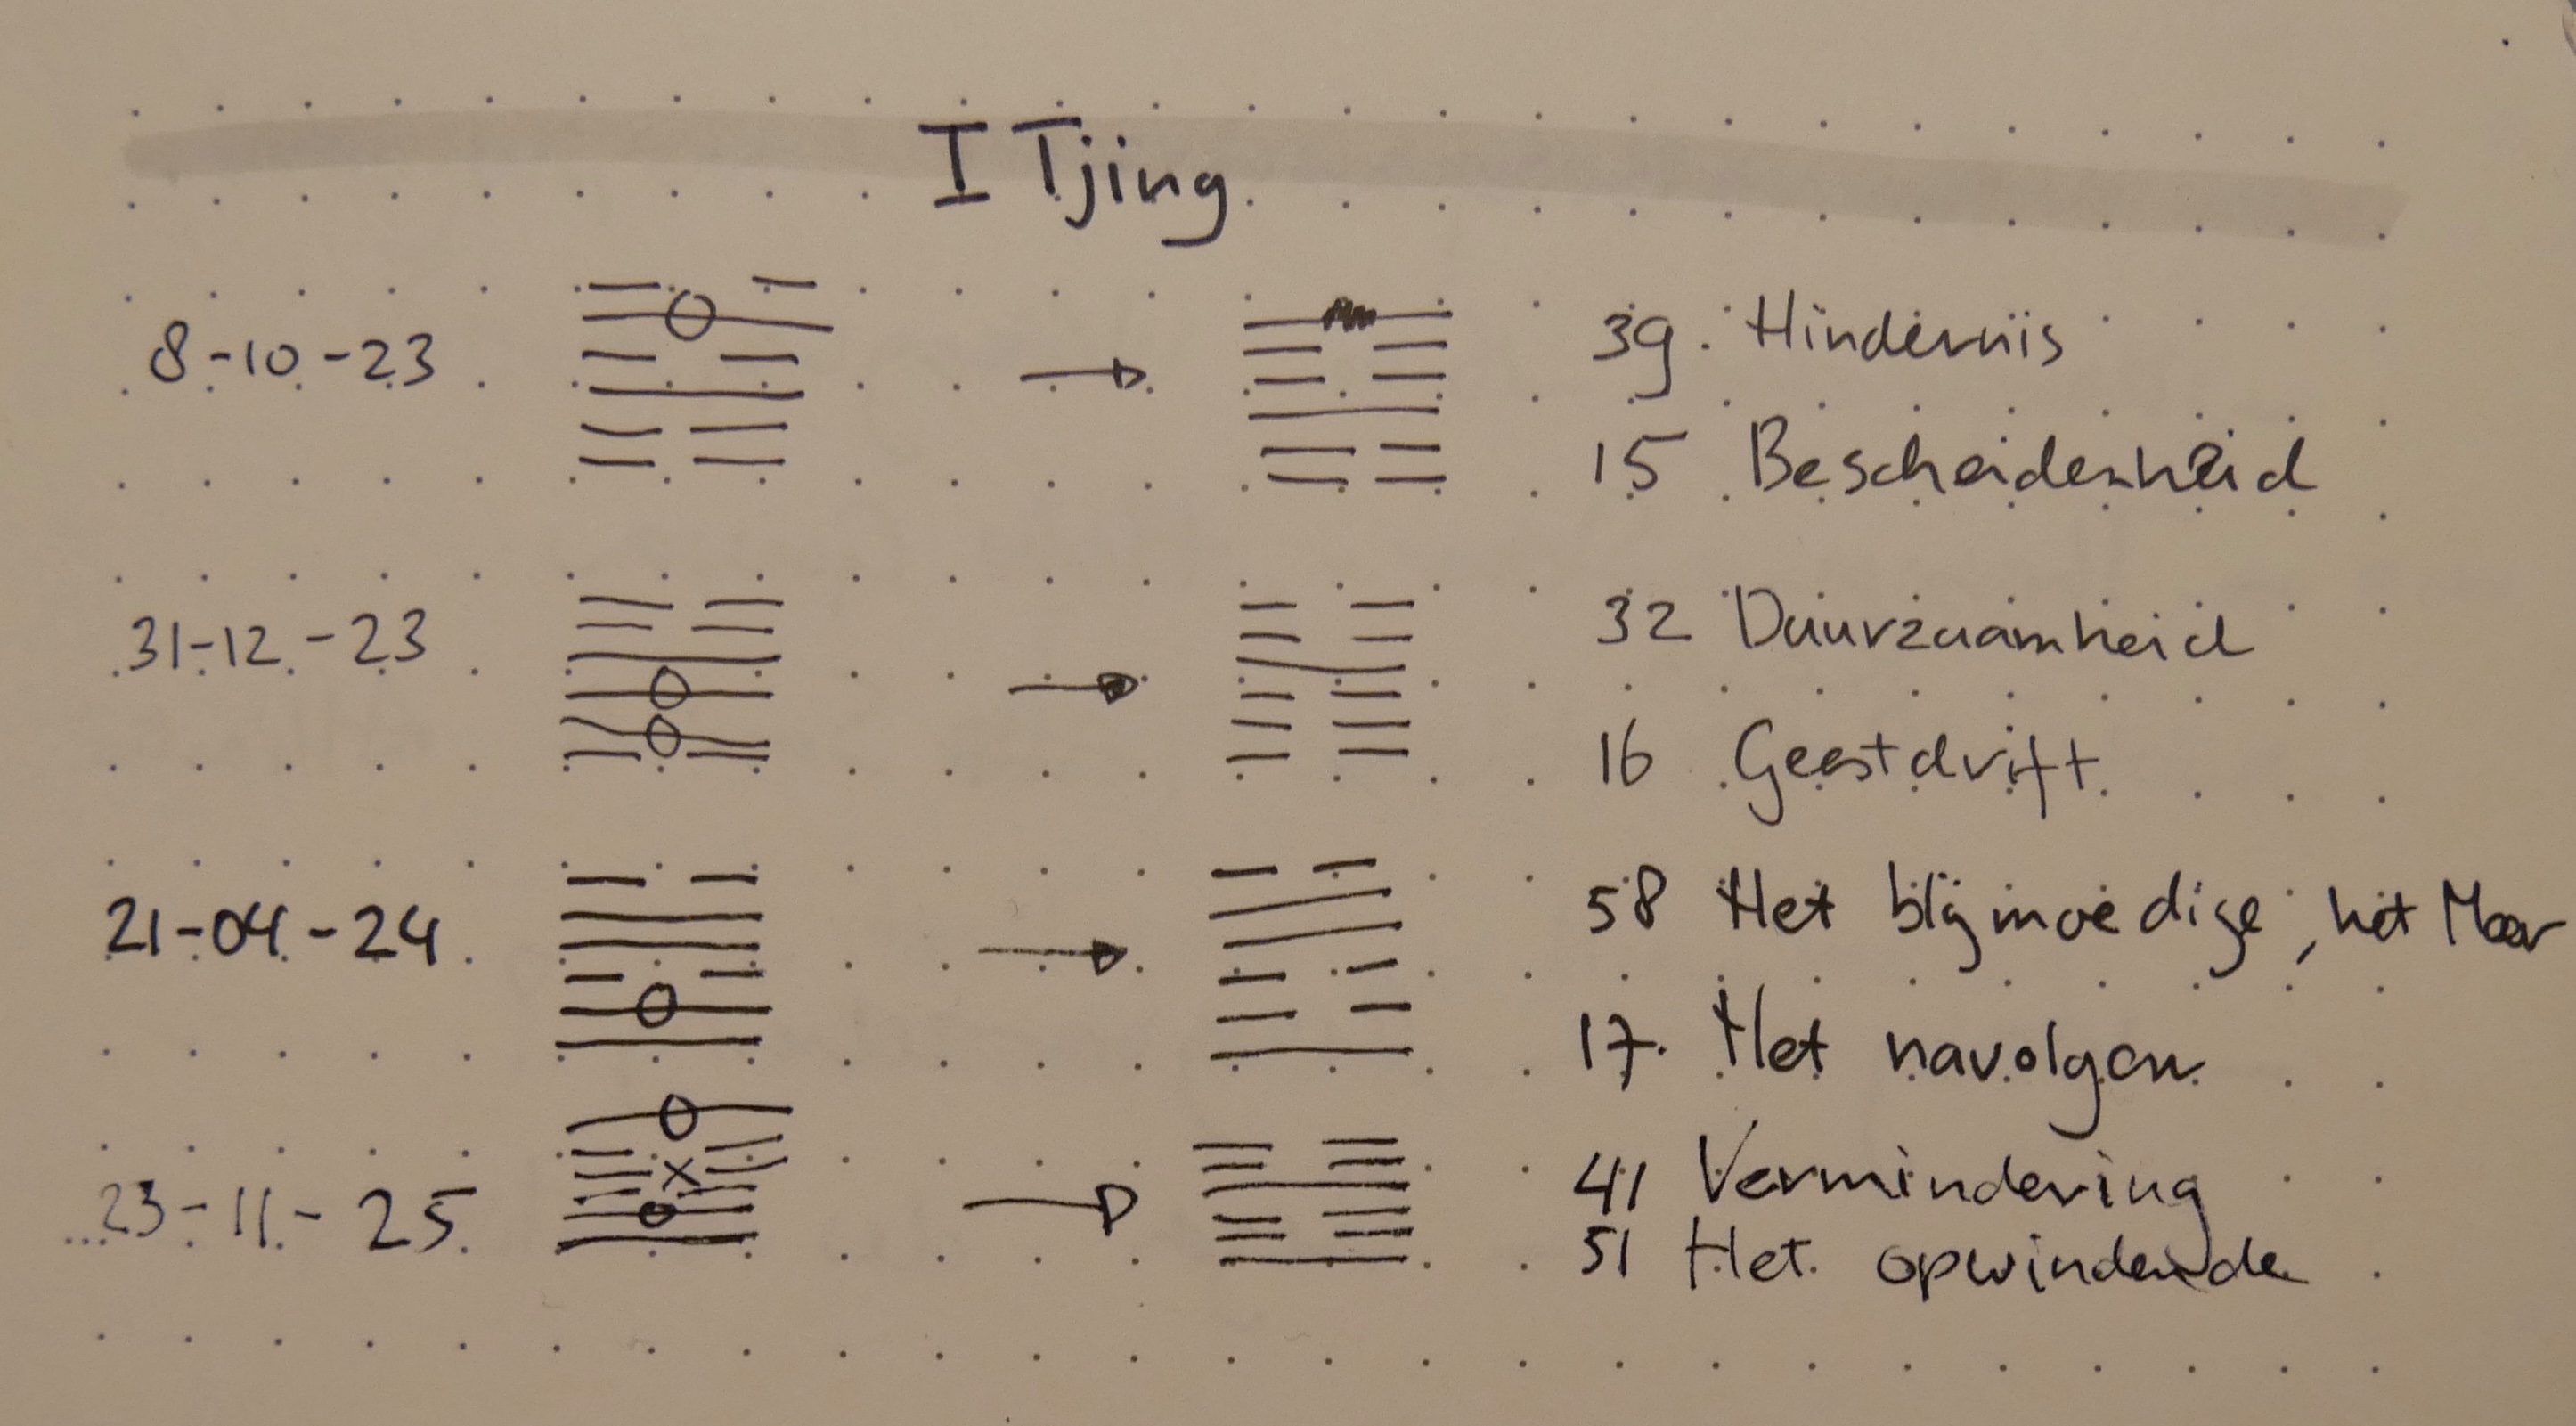 I Tjing
8-10-23
39. Hindernis
15 Bescheidenheid
31-12-23
32 Duurzaamheid
16 Geestdrift
21-04-24
58 Het blijmoedige, het Meer
17. Het navolgen
23-11-25
41 Vermindering
51 Het opwindende